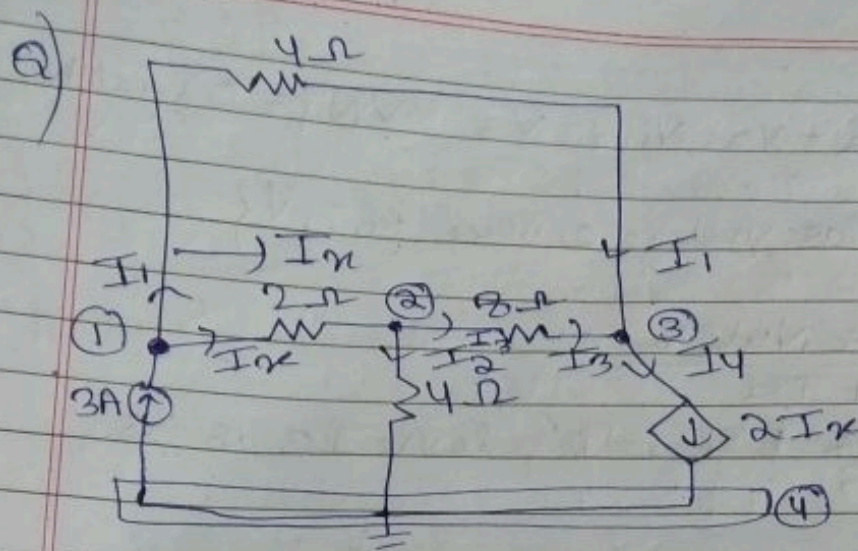 Q)
4Ω
I₁ → Iₓ I₁
① 2Ω ② 8Ω ③
Iₓ I₂ I₃ I₃ I₄
3A 4Ω 2Iₓ
④